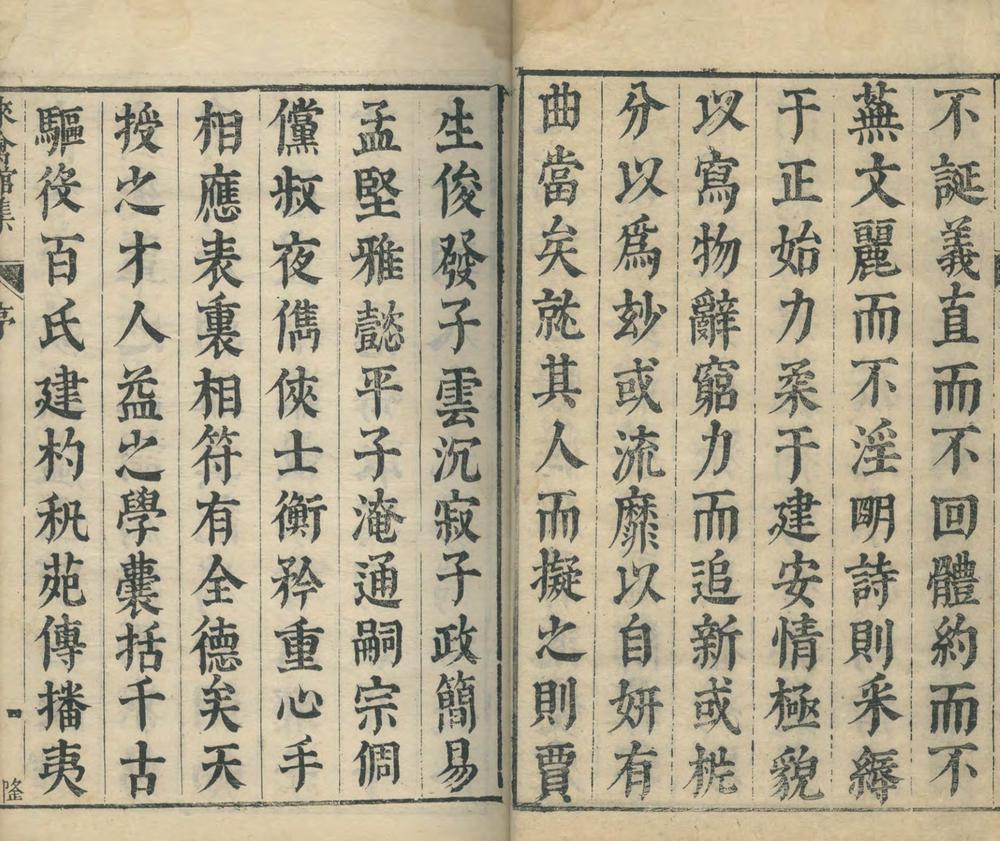 不誕義直而不回體約而不
蕪文麗而不淫明詩則采縟
于正始力柔于建安情極貌
以寫物辭窮力而追新或㭊
分以爲玅或流靡以自妍有
曲當矣就其人而擬之則賈
生俊發子雲沉寂子政簡易
孟堅雅懿平子淹通嗣宗倜
儻叔夜儁俠士衡矜重心手
相應表裏相符有全德矣天
授之才人益之學囊括千古
驅役百氏建杓秇苑傳播夷
來禽館集
序
四
隆